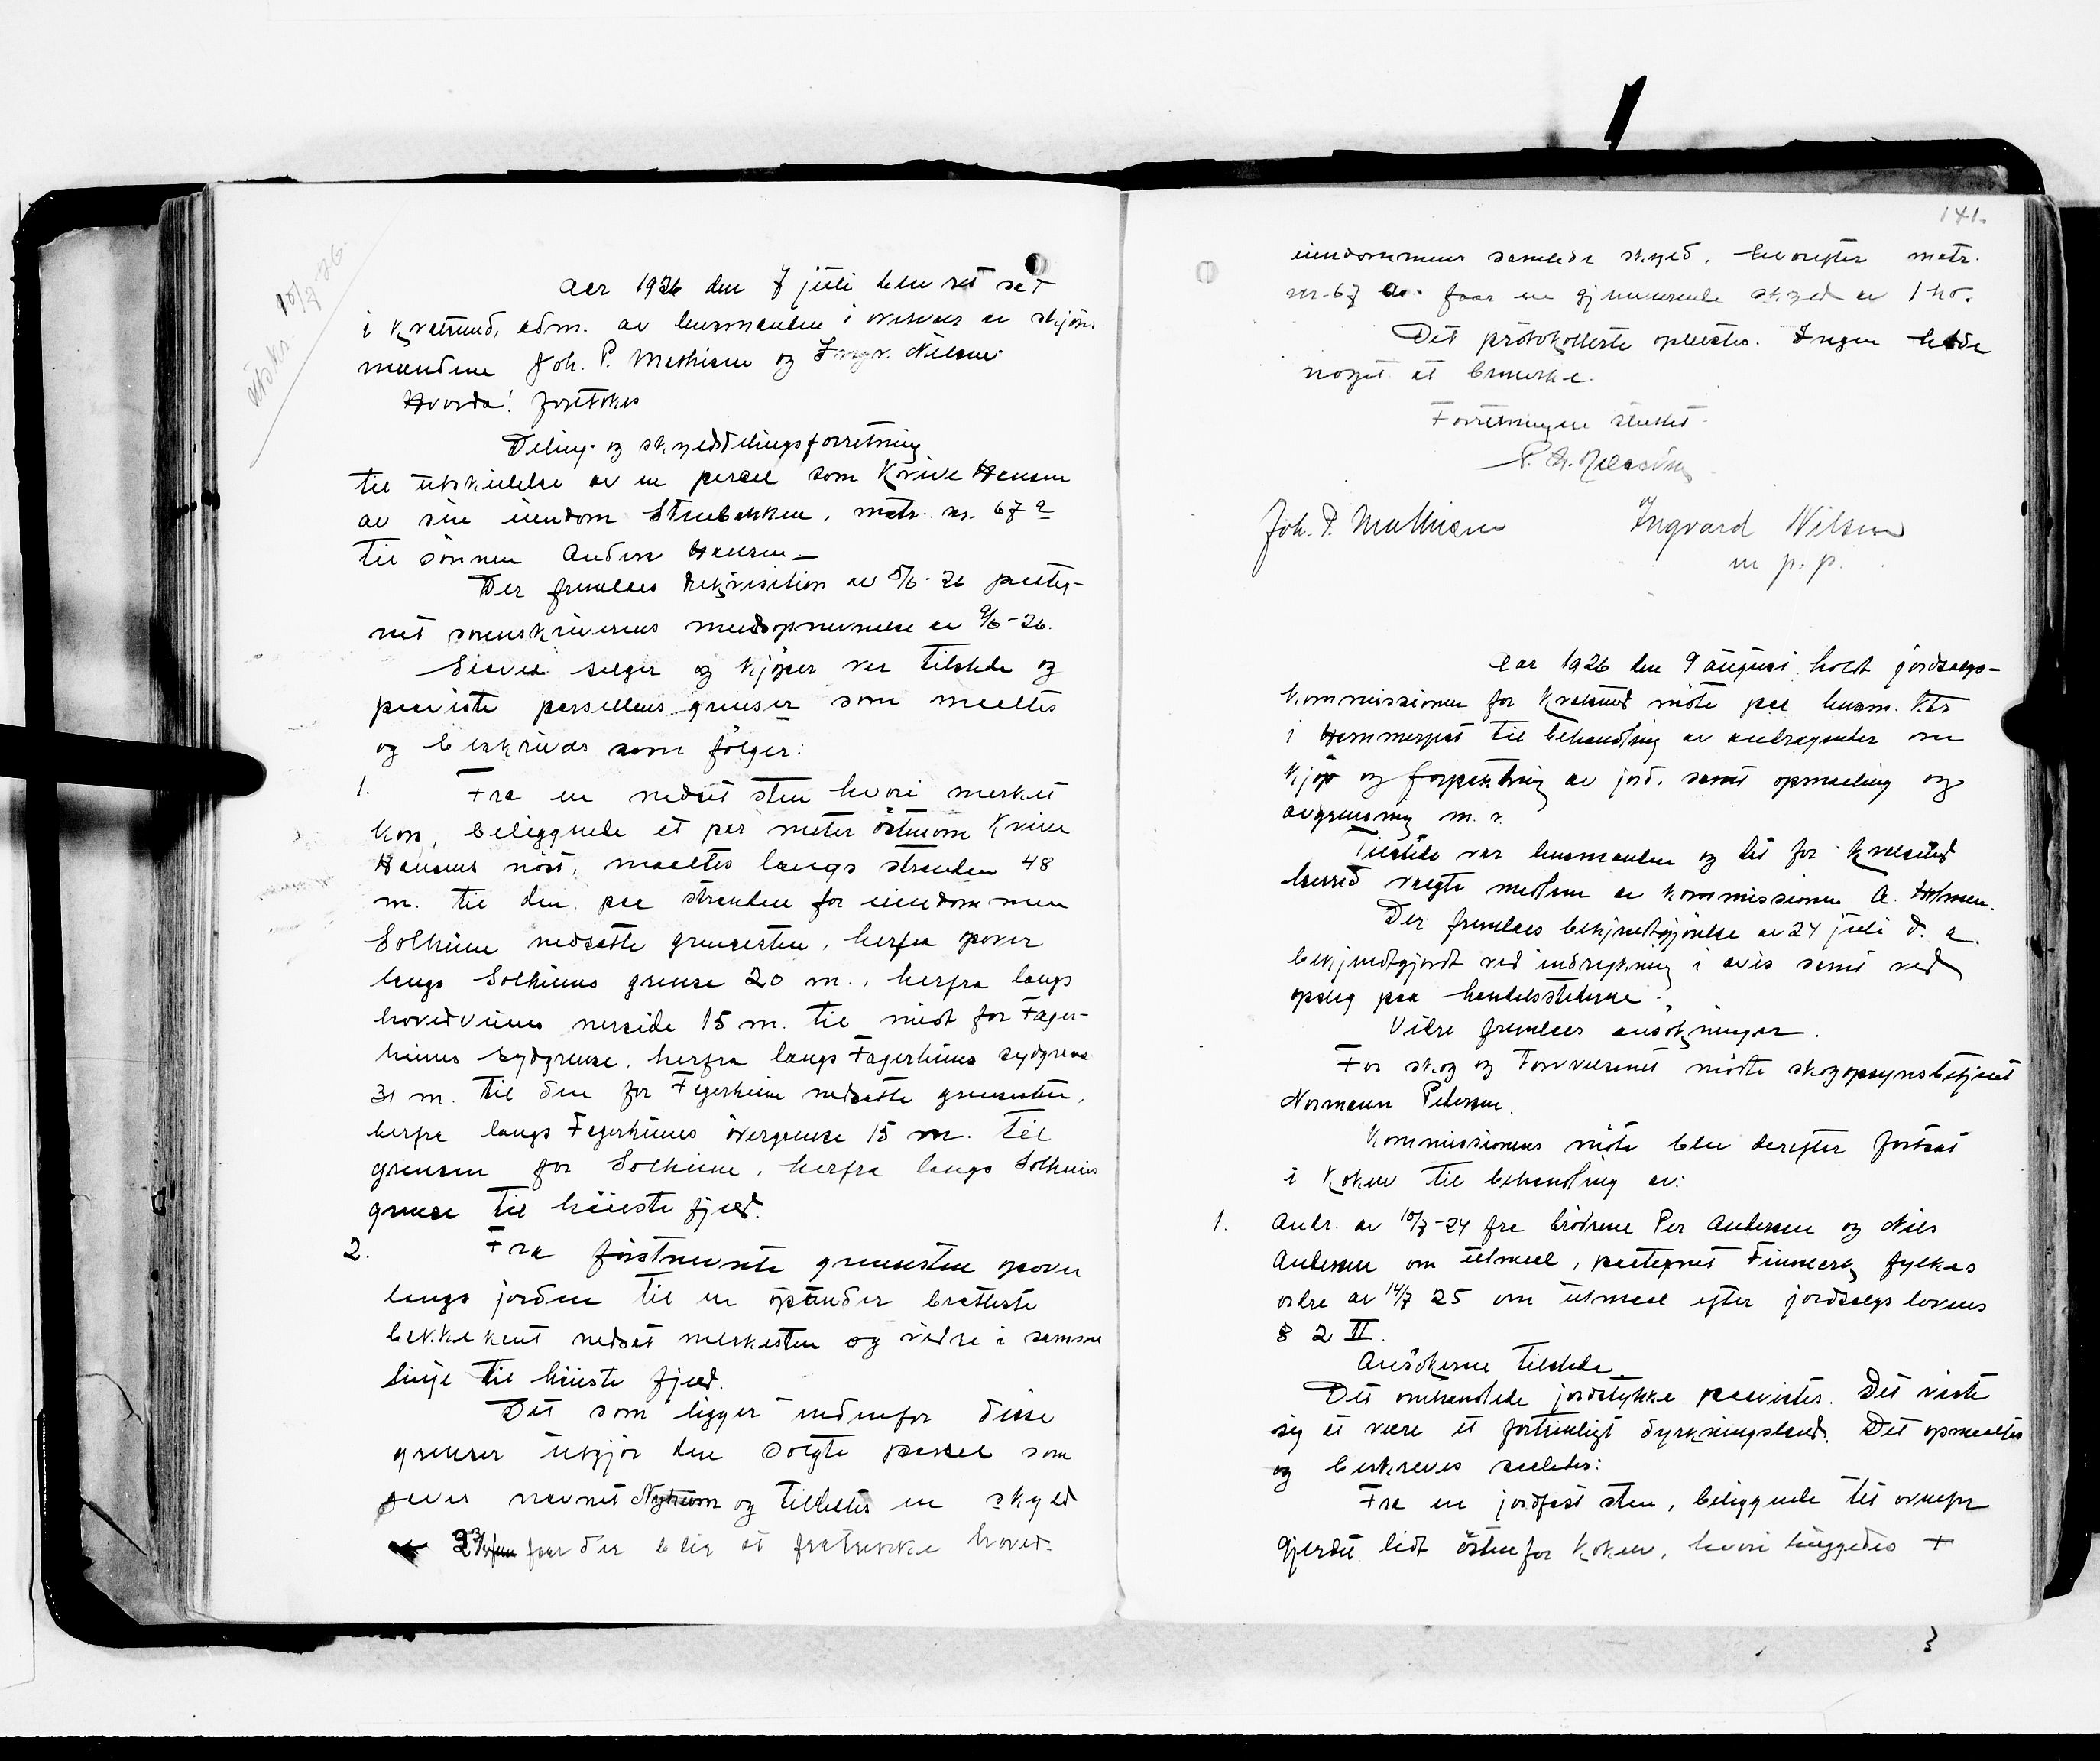 Utskr. 10/7-26
Aar 1926 den 7 juli blev ret sat
i Kvalsund, adm. av lensmanden i overvær av skjøns
mændene Joh. P. Mathisen og Ingv. Nilsen.
Hvorda! foretokes
Deling- og skylddelingsforretning
til utskillelse av en parcel som Krive Hansen
av sin eiendom Stenbakken, matr. nr. 67 a
til sønnen Anders Hansen —
Der fremlaes rekvisition av 5/6-26 paateg-
net sorenskriverens mændsopnævnelse av 9/6-26.
Saavel sælger og kjøper var tilstede og
paaviste parsellens grenser som maaltes
og beskrives som følger:
1. Fra en nedsat sten hvori merket
kors, beliggende et par meter østenom Krive
Hansens nøst, maaltes langs stranden 48
m. til den paa stranden for eiendommen
Solheim nedsatte grensesten, herfra opover
langs Solheims grense 20 m., herfra langs
hovedveiens nerside 15 m. til midt for Fager-
heims sydgrense, herfra langs Fagerheims sydgrense
31 m. til den for Fagerheim nedsatte grensesten,
herfra langs Fagerheims övergrense 15 m. til
grensen for Solheim, herfra langs Solheims
grense til höieste fjeld.
2. Fra förstnevnte grensesten opover
langs jorden til en opunder bratteste
bakkekant nedsat merkesten og videre i samme
linje til höieste fjeld.
Det som ligger indenfor disse
grenser utgjör den solgte parsel som
gaves navnet Nyheim og tilldeltes en skyld
av 3 der blir at fratrække hoved-
141.
eiendommens samlede skyld, hvorefter matr.
nr. 67 a. faar en gjenværende skyld av 1 hö.
Det protokollerte oplæstes. Ingen hadde
noget at bemerke.
Forretningen sluttet.
Joh. P. Mathisen Ingvard Nilsen
m p. p.
Aar 1926 den 9 august holdt jordsalgs-
kommissionen for Kvalsund möte paa lensm. ktr
i Hammerfest til behandling av andragender om
kjöp og forpaktning av jord, samt opmaaling og
avgrensning m. v.
Tilstede var lensmanden og det for Kvalsund
herred valgte medlem av kommissionen A. Holmen.
Der fremlaes bekjendtgjörelse av 24 juli d. a.
bekjendtgjordt ved indrykning i avis samt ved
opslag paa handelsstederne.
Videre fremlaes ansökninger.
For skog og Forvæsenet mötte skogopsynsbetjent
Normann Petersen.
Kommissionens möte blev derefter fortsat
i Kokelv til behandling av:
1. Andr. av 10/7-24 fra brödrene Per Andersen og Nils
Andersen om utmaal, paategnet Finmark fylkes
ordre av 14/7 25 om utmaal efter jordsalgslovens
§ 2 II.
Ansökerne tilstede.
Det omhandlede jordstykke paavistes. Det viste
sig at være et fortrinligt dyrkningsland. Det opmaaltes
og beskreves saaledes:
Fra en jordfast sten, beliggende tet ovenfor
gjerdet lidt östenfor Kokelv, hvori huggedes +